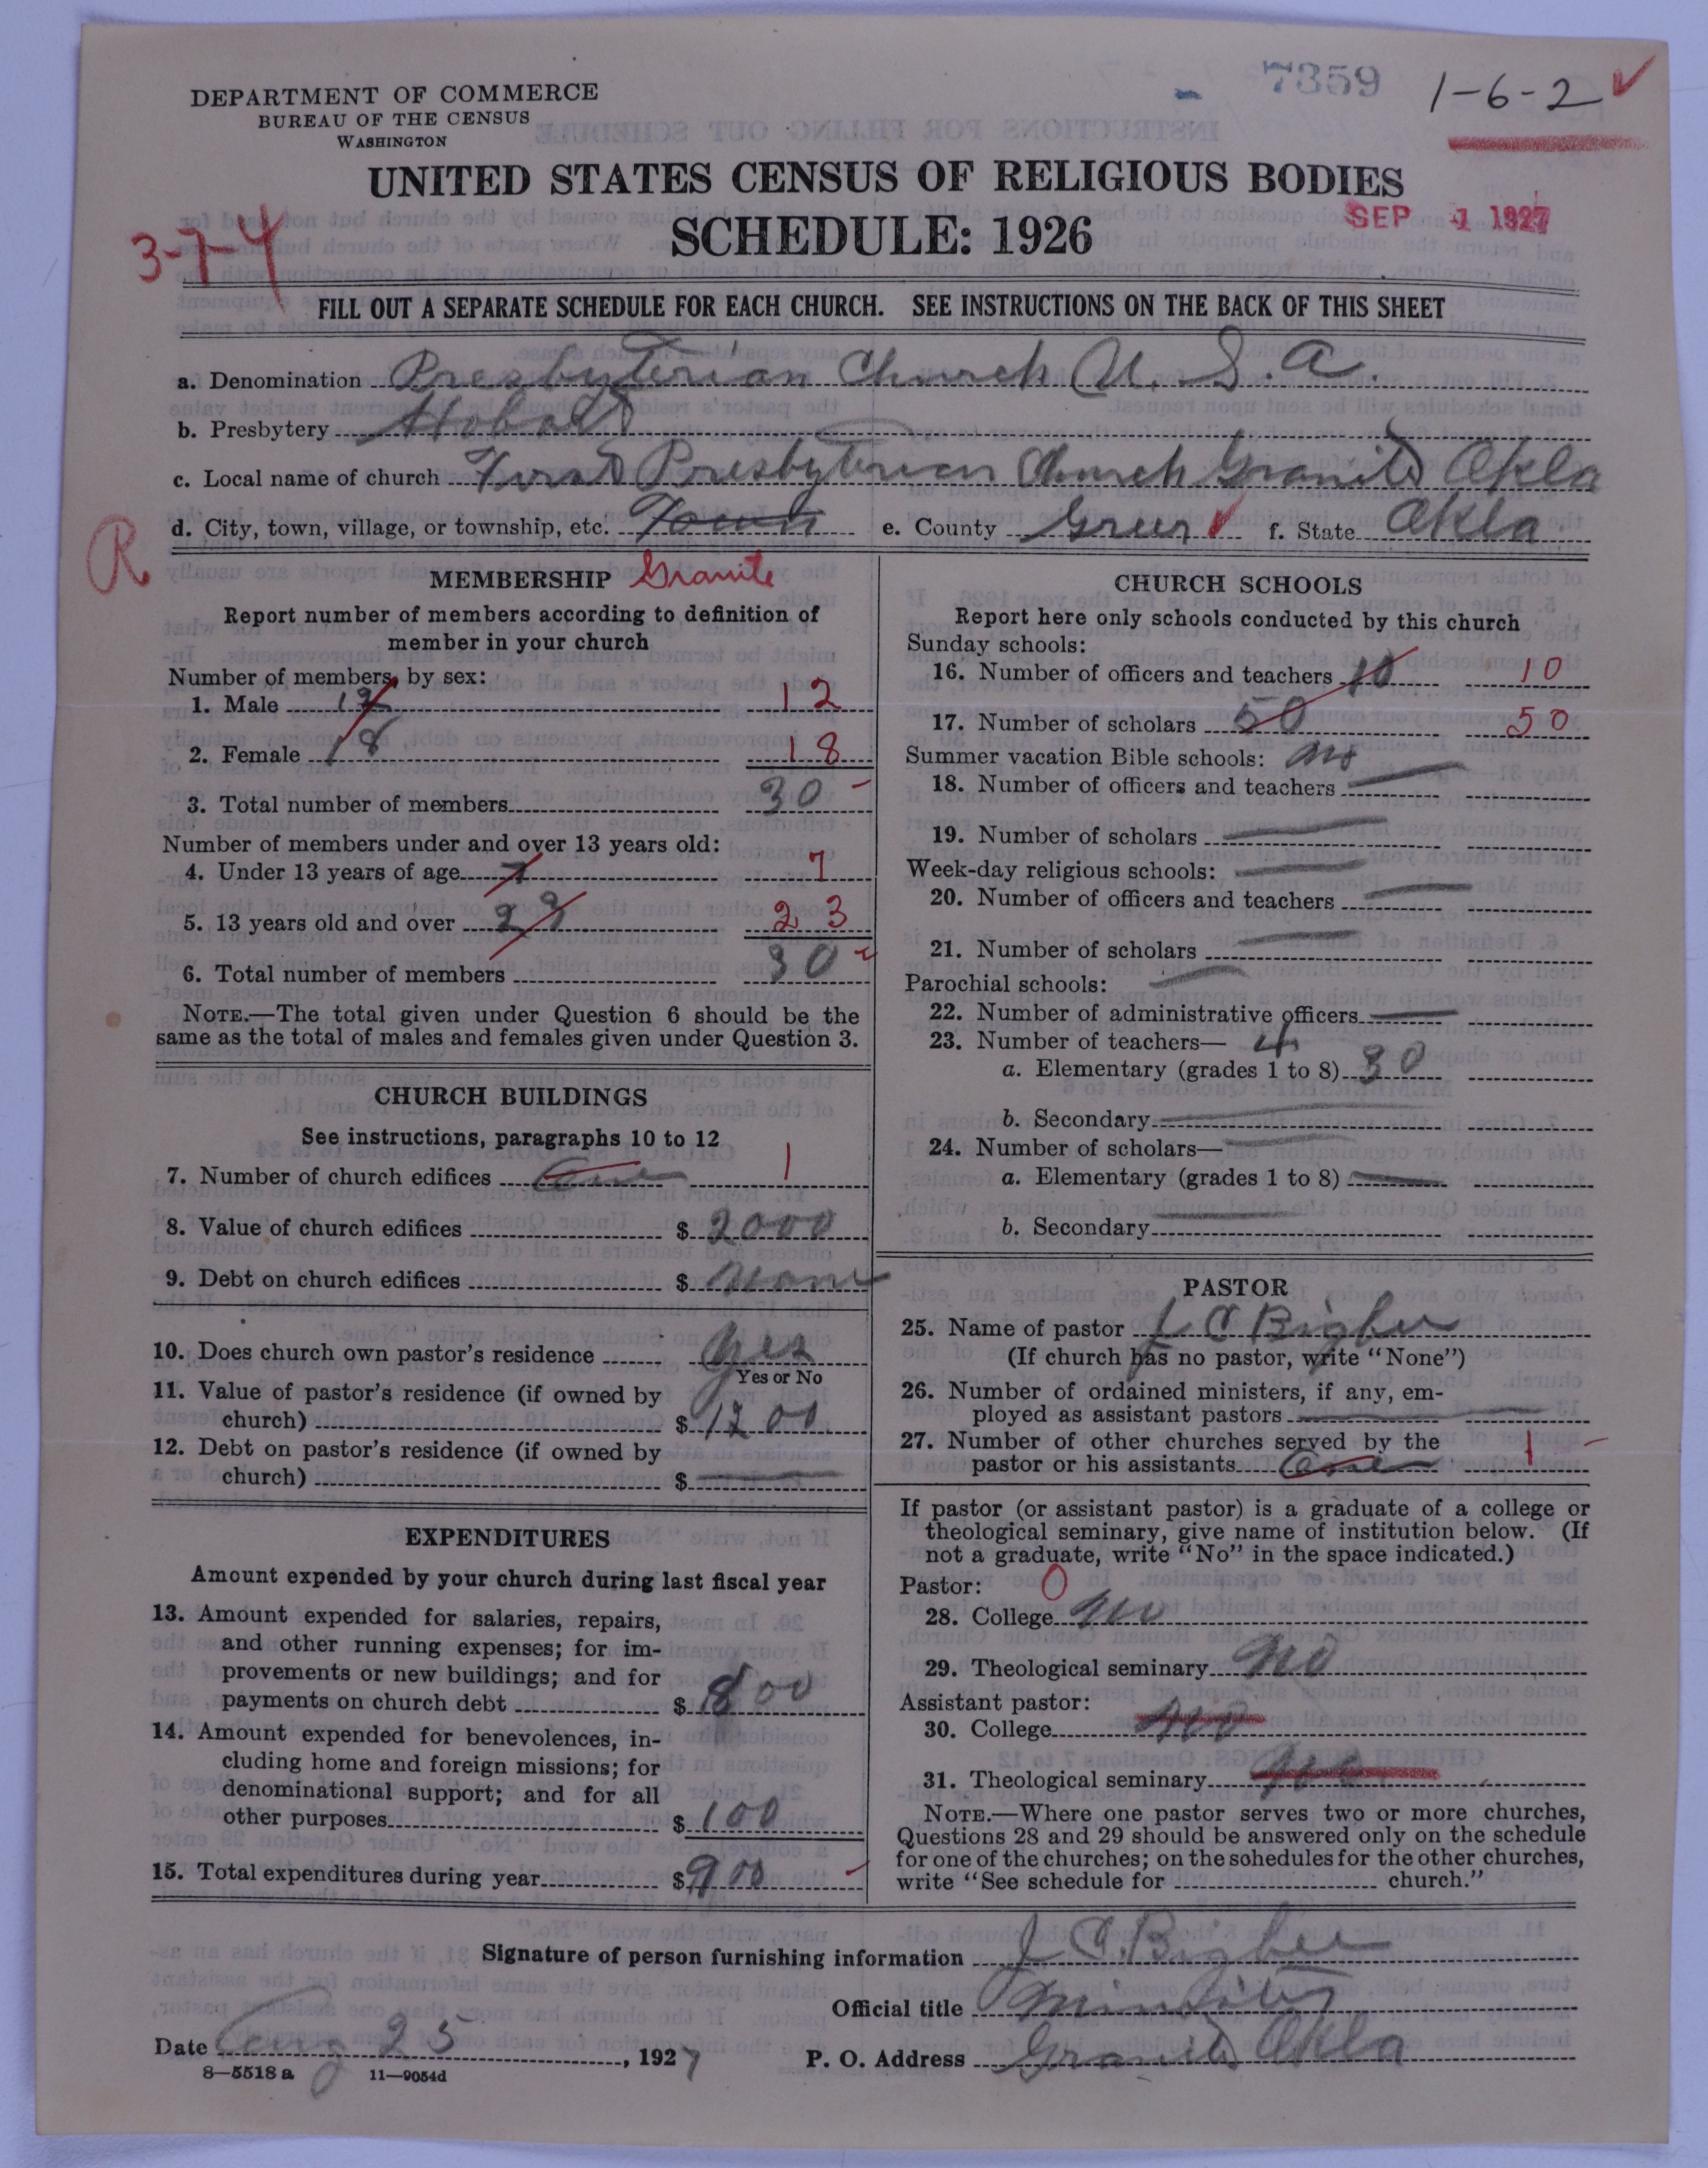 7359
1-6-2 ✓
DEPARTMENT OF COMMERCE
BUREAU OF THE CENSUS
WASHINGTON
UNITED STATES CENSUS OF RELIGIOUS BODIES
SEP 1 1927
3-7-4
SCHEDULE: 1926
FILL OUT A SEPARATE SCHEDULE FOR EACH CHURCH. SEE INSTRUCTIONS ON THE BACK OF THIS SHEET
a. Denomination Presbyterian Church U. S. A.
b. Presbytery Hobart
c. Local name of church First Presbyterian Church Granite Okla
d. City, town, village, or township, etc. Town e. County Greer ✓ f. State Okla.
R
MEMBERSHIP Granite
Report number of members according to definition of
member in your church
Number of members, by sex:
1. Male 12 12
2. Female 18 18
3. Total number of members 30
Number of members under and over 13 years old:
4. Under 13 years of age 7 7
5. 13 years old and over 23 23
6. Total number of members 30
NOTE.—The total given under Question 6 should be the
same as the total of males and females given under Question 3.
CHURCH BUILDINGS
See instructions, paragraphs 10 to 12
7. Number of church edifices One 1
8. Value of church edifices $ 2000
9. Debt on church edifices $ None
10. Does church own pastor's residence Yes
Yes or No
11. Value of pastor's residence (if owned by
church) $ 1200
12. Debt on pastor's residence (if owned by
church) $
EXPENDITURES
Amount expended by your church during last fiscal year
13. Amount expended for salaries, repairs,
and other running expenses; for im-
provements or new buildings; and for
payments on church debt $ 800
14. Amount expended for benevolences, in-
cluding home and foreign missions; for
denominational support; and for all
other purposes $ 100
15. Total expenditures during year $ 900
CHURCH SCHOOLS
Report here only schools conducted by this church
Sunday schools:
16. Number of officers and teachers 10 10
17. Number of scholars 50 50
Summer vacation Bible schools: No
18. Number of officers and teachers
19. Number of scholars
Week-day religious schools:
20. Number of officers and teachers
21. Number of scholars
Parochial schools:
22. Number of administrative officers
23. Number of teachers— 4
a. Elementary (grades 1 to 8) 30
b. Secondary
24. Number of scholars—
a. Elementary (grades 1 to 8)
b. Secondary
PASTOR
25. Name of pastor J C Bigber
(If church has no pastor, write "None")
26. Number of ordained ministers, if any, em-
ployed as assistant pastors
27. Number of other churches served by the
pastor or his assistants One 1
If pastor (or assistant pastor) is a graduate of a college or
theological seminary, give name of institution below. (If
not a graduate, write "No" in the space indicated.)
Pastor: 0
28. College No
29. Theological seminary No
Assistant pastor:
30. College No
31. Theological seminary No
NOTE.—Where one pastor serves two or more churches,
Questions 28 and 29 should be answered only on the schedule
for one of the churches; on the schedules for the other churches,
write "See schedule for church."
Signature of person furnishing information J C Bigber
Official title Minister
Date Aug 25, 1927 P. O. Address Granite Okla
8—5518 a 11—9054d